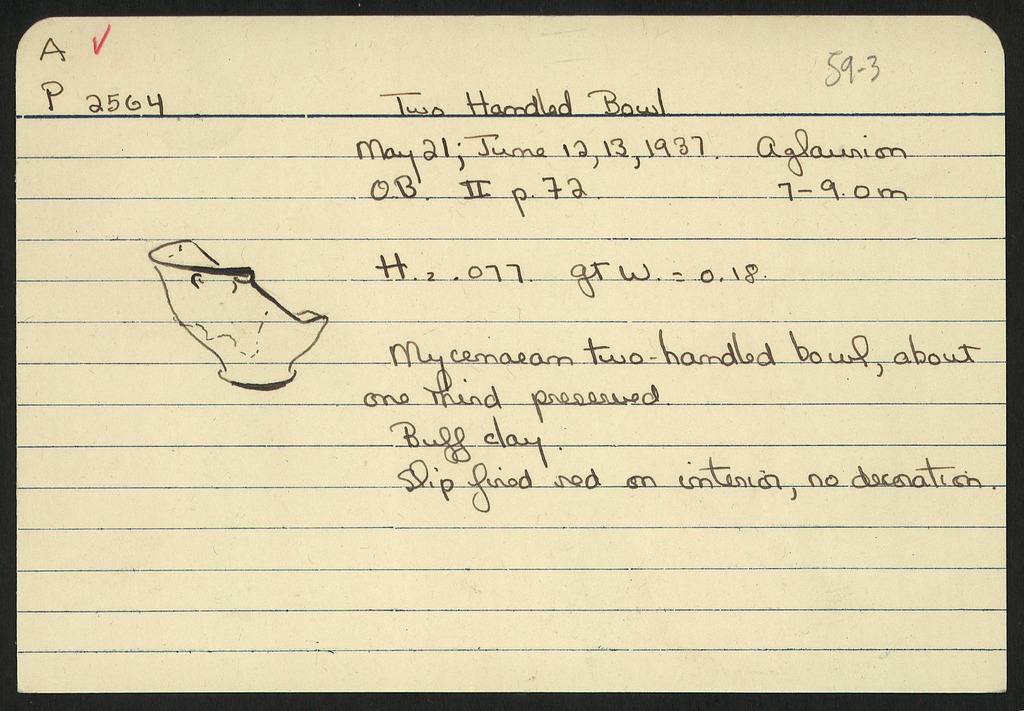 A ✓
59-3
P 2564 Two Handled Bowl
May 21; June 12, 13, 1937. Aglaurion
OB. II p. 72. 7-9.0m
H. = .077. gt W. = 0.18.
Mycenaean two-handled bowl, about
one third preserved.
Buff clay.
Slip fired red on interior, no decoration.